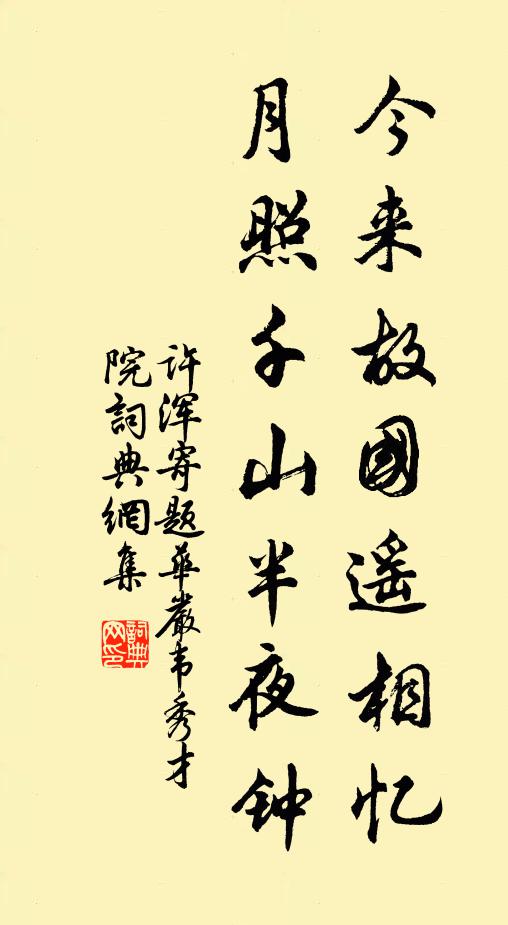 今来故國遥相忆
月照千山半夜钟
许浑寄题華嚴韦秀才
院詞典網集
詞典
网印